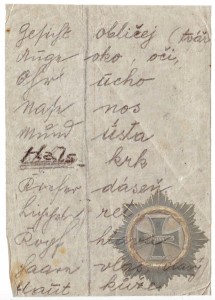 Gesicht obličej (tvář
Auge oko, oči,
Ohr ucho
Nase nos
Mund ústa
Hals krk
dáseň
ret
Kopf
Haare vlas
Haut kůže